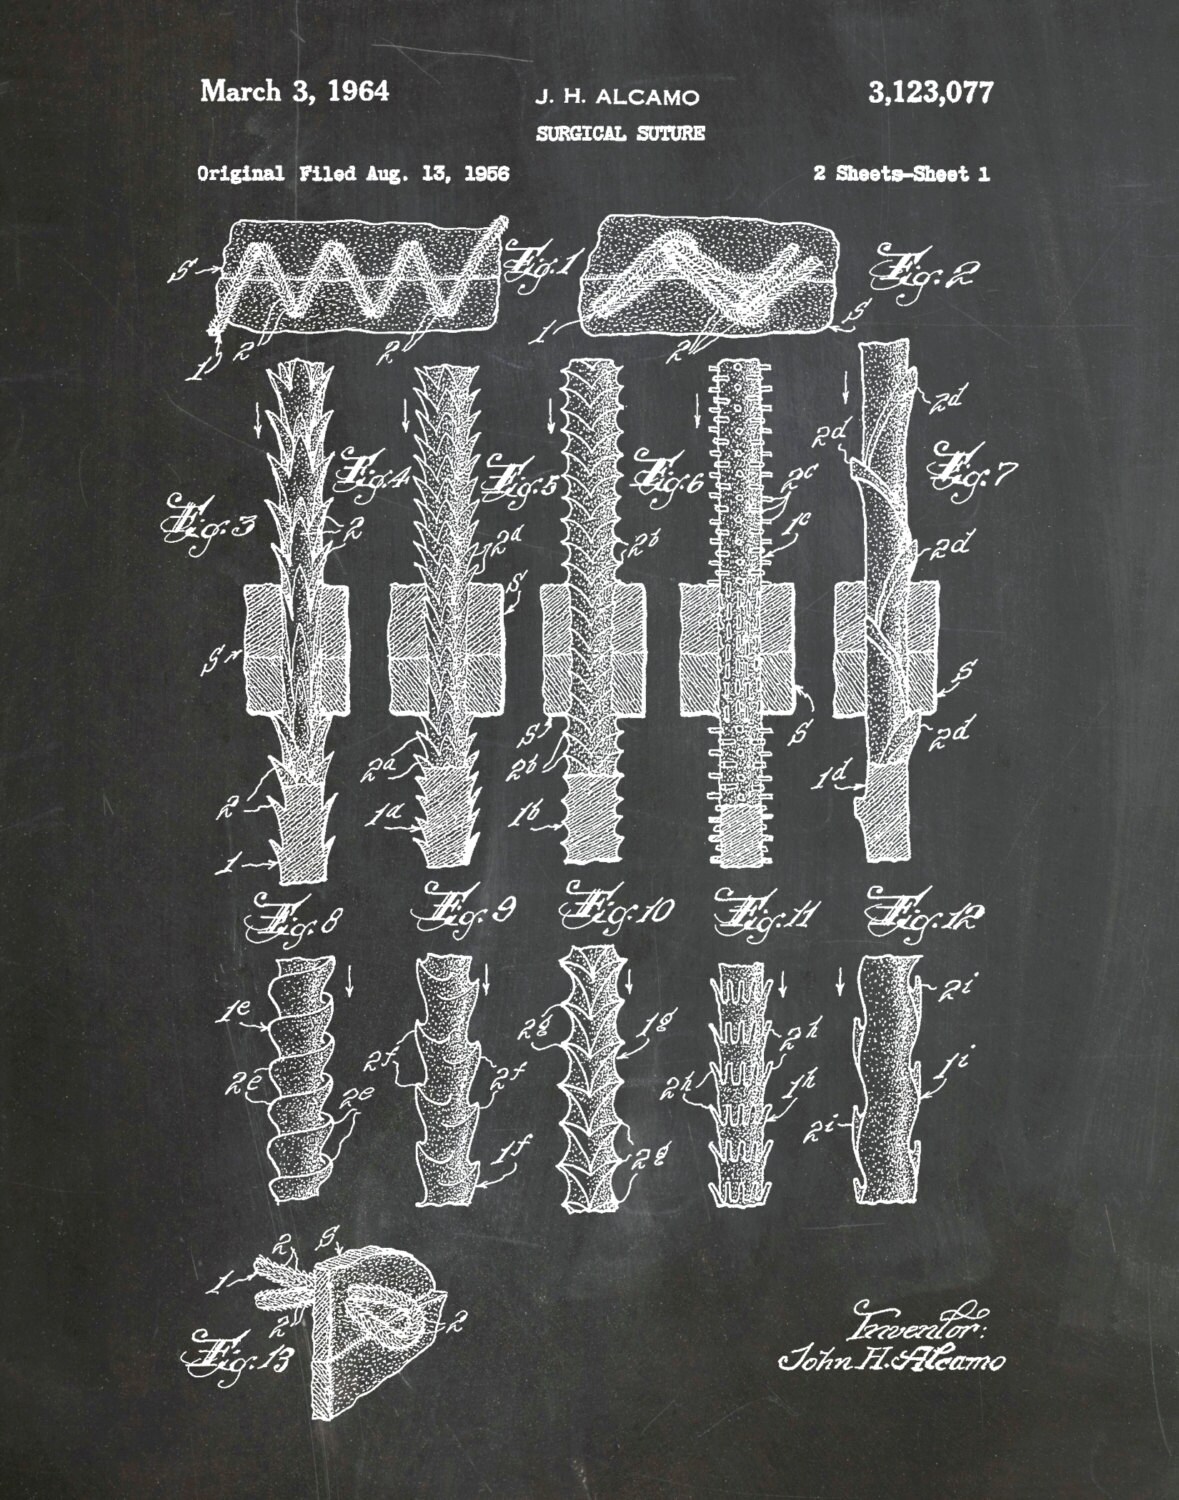 March 3, 1964
J. H. ALCAMO
3,123,077
SURGICAL SUTURE
Original Filed Aug. 13, 1956
2 Sheets-Sheet 1
S
Fig. 1
1
2
2
Fig. 2
1
2
S
Fig. 3
2
S
2
1
Fig. 4
2a
S
2a
1a
Fig. 5
2b
S
2b
1b
Fig. 6
2c
1c
S
Fig. 7
2d
2d
2d
S
2d
1d
Fig. 8
1e
2e
2e
Fig. 9
2f
2f
1f
Fig. 10
2g
1g
2g
Fig. 11
2h
2h
1h
Fig. 12
2i
1i
2i
2
S
1
2
2
Fig. 13
Inventor:
John H. Alcamo